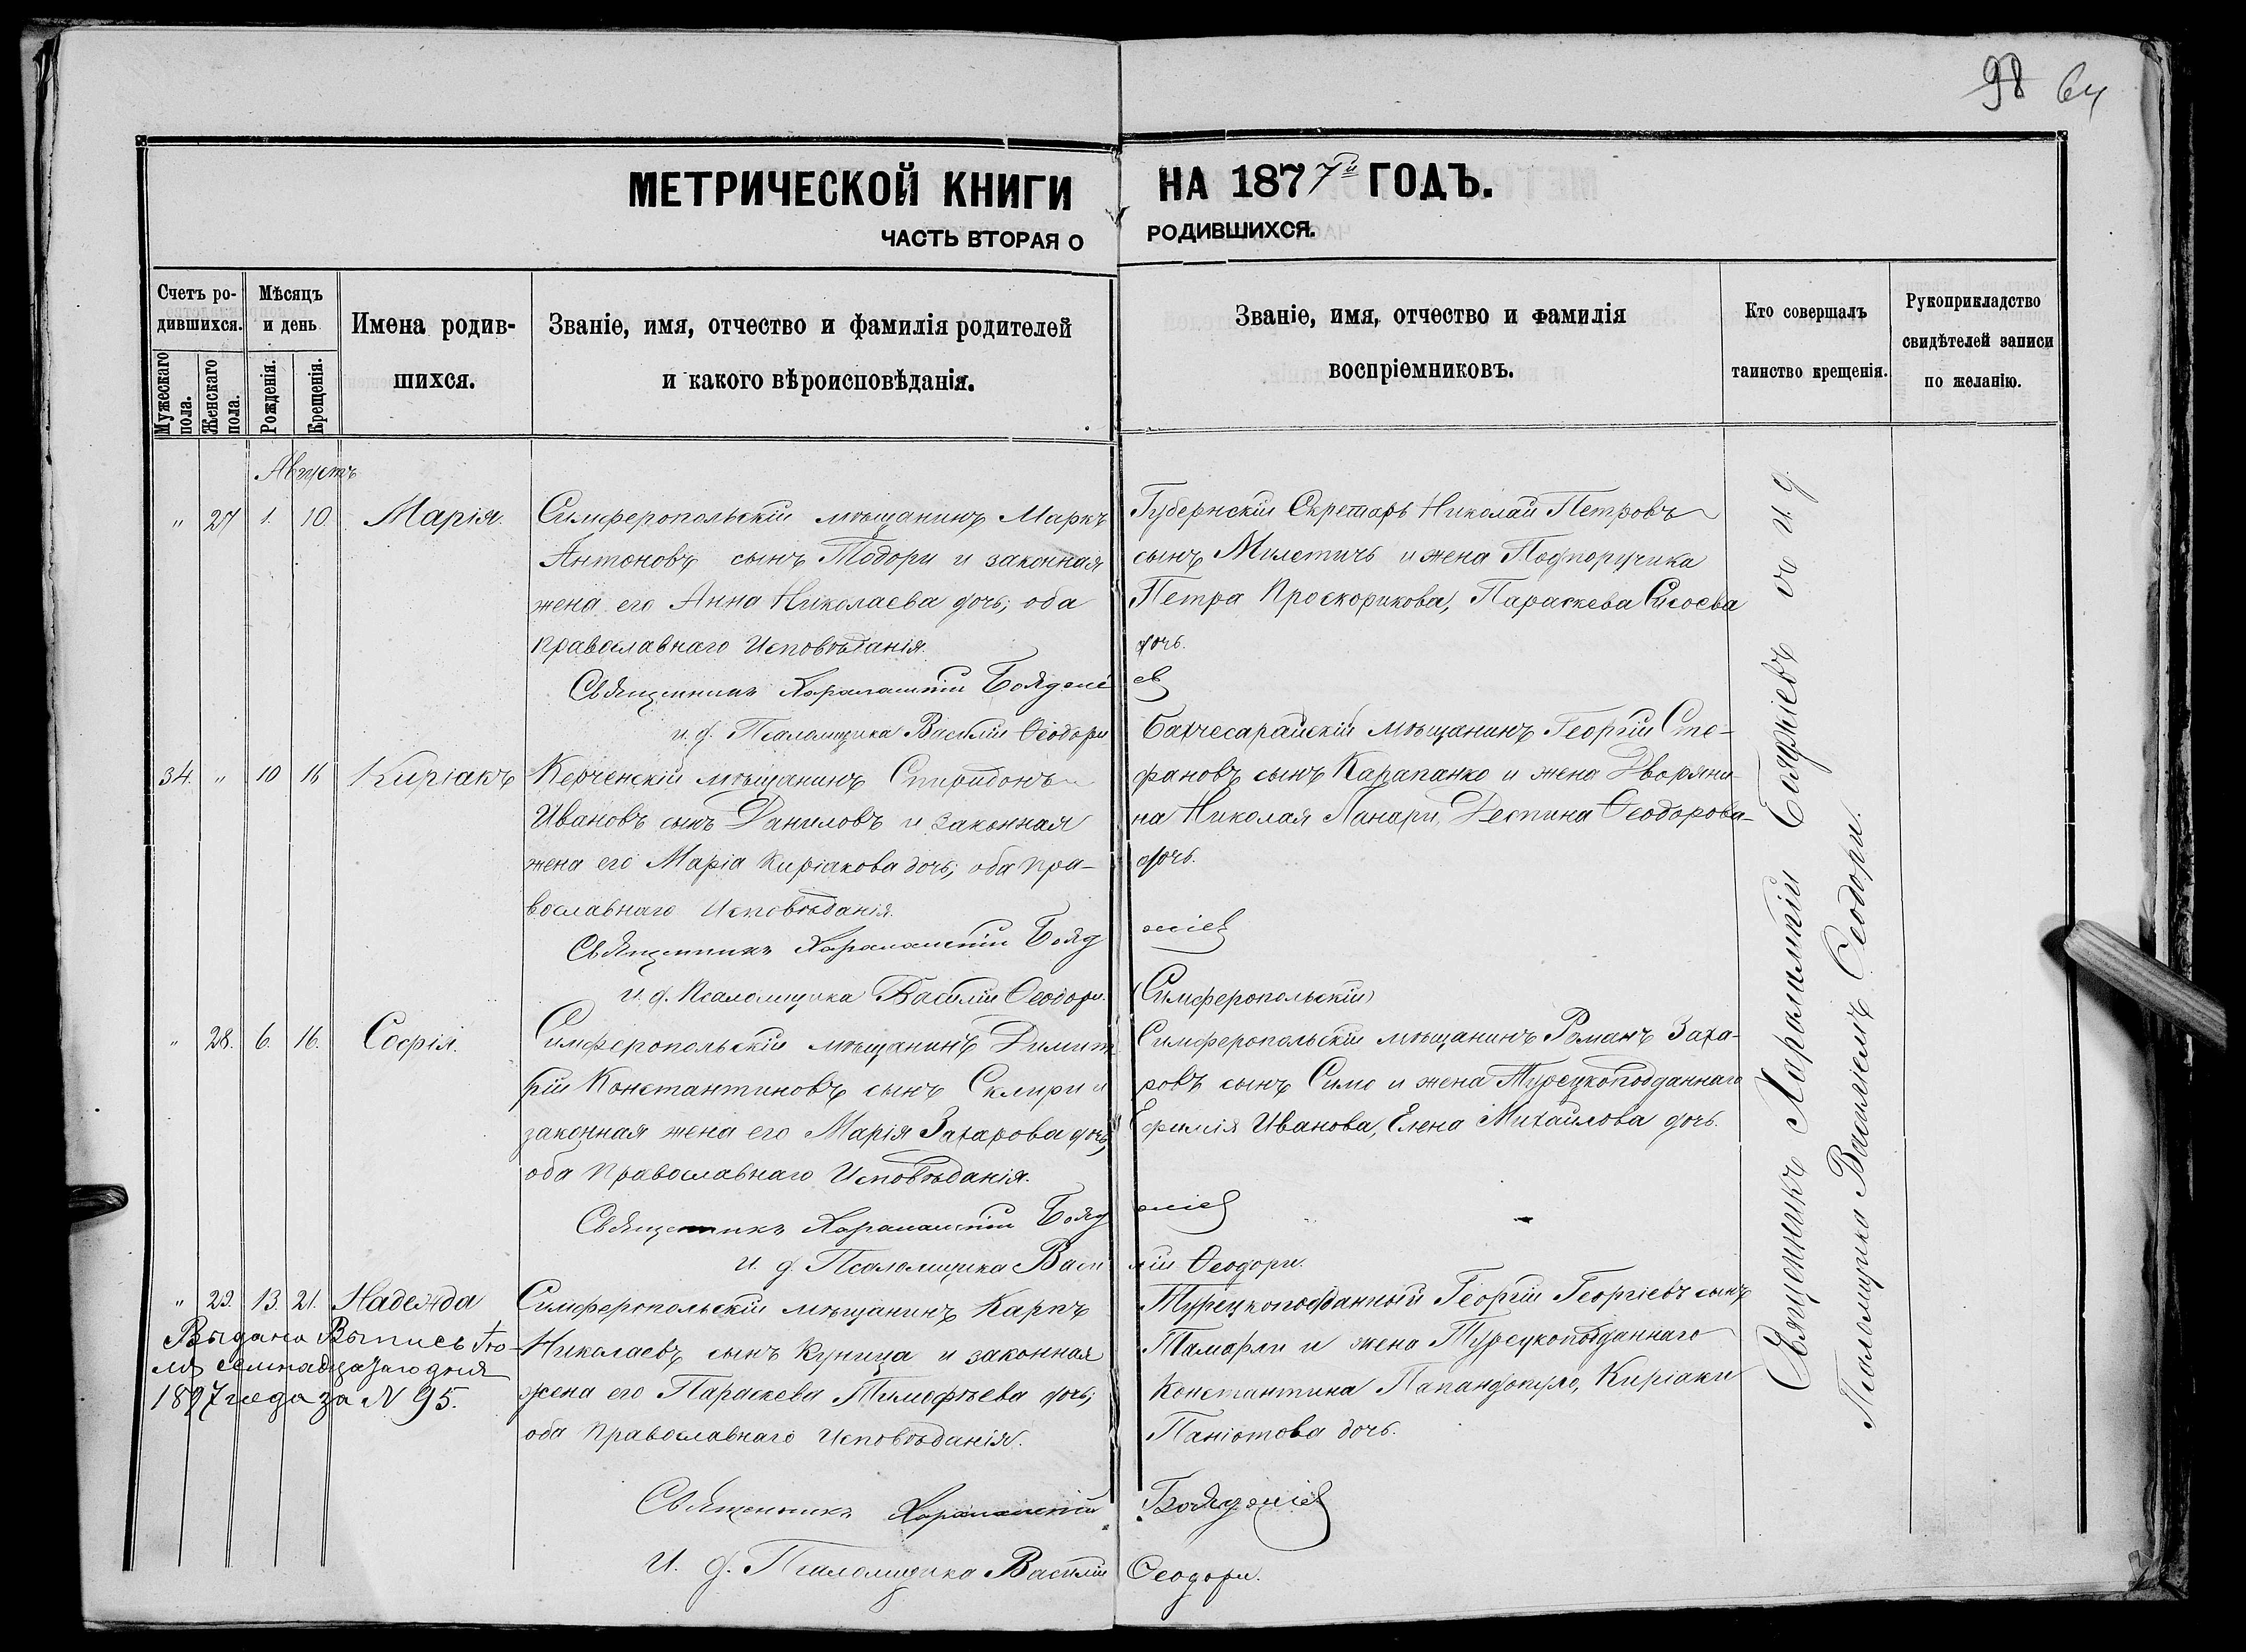 98 64
МЕТРИЧЕСКОЙ КНИГИ НА 1877й ГОДЪ.
ЧАСТЬ ВТОРАЯ О РОДИВШИХСЯ.
Счетъ ро-
дившихся.
Мужескаго пола.
Женскаго пола.
Мѣсяцъ
и день
Рожденія.
Крещенія.
Имена родив-
шихся.
Званіе, имя, отчество и фамилія родителей
и какого вѣроисповѣданія.
Званіе, имя, отчество и фамилія
воспріемниковъ.
Кто совершалъ
таинство крещенія.
Рукоприкладство
свидѣтелей записи
по желанію.
Августъ
" 27 1. 10 Марія.
Симферопольскій мѣщанинъ Маркъ
Антоновъ сынъ Тодори и законная
жена его Анна Николаева дочь; оба
православнаго Исповѣданія.
Губернскій Секретарь Николай Петровъ
сынъ Милетичъ и жена Подпоручика
Петра Проскорикова, Параскева Сисоева
дочь.
Священникъ Харалампій Бояджіев
и. д. Псаломщика Василій Ѳеодори
34. " 10 16 Киріакъ
Керченскій мѣщанинъ Спиридонъ
Ивановъ сынъ Даниловъ и законная
жена его Марія Киріакова дочь; оба пра-
вославнаго Исповѣданія.
Бахчесарайскій мѣщанинъ Георгій Сте-
фановъ сынъ Карапанко и жена Дворяни-
на Николая Ланари, Деспина Ѳеодорова
дочь.
Священникъ Харалампій Бояджіев
и. д. Псаломщика Василій Ѳеодори.
(Симферопольскій)
" 28. 6. 16. Софія.
Симферопольскій мѣщанинъ Димит
рій Константиновъ сынъ Склири и
законная жена его Марія Захарова дочь,
оба православнаго Исповѣданія.
Симферопольскій мѣщанинъ Романъ Заха-
ровъ сынъ Симо и жена Турецкоподданнаго
Ефимія Иванова, Елена Михайлова дочь.
Священникъ Харалампій Бояджіев
И. д. Псаломщика Василій Ѳеодори.
" 29. 13. 21. Надежда
Выдана Выпись Ію-
ля семнадцатаго дня
1897 года за N 95.
Симферопольскій мѣщанинъ Карпъ
Николаевъ сынъ Куница и законная
жена его Параскева Тимофѣева дочь;
оба православнаго Исповѣданія.
Турецкоподданный Георгій Георгіевъ сынъ
Тамарли и жена Турецкоподданнаго
Константина Папандопуло, Киріаки
Паніотова дочь.
Священникъ Харалампій Бояджіев
И. д. Псаломщика Василій Ѳеодори.
Священникъ Харалампій Бояджіевъ съ и. д.
Псаломщика Василіемъ Ѳеодори.